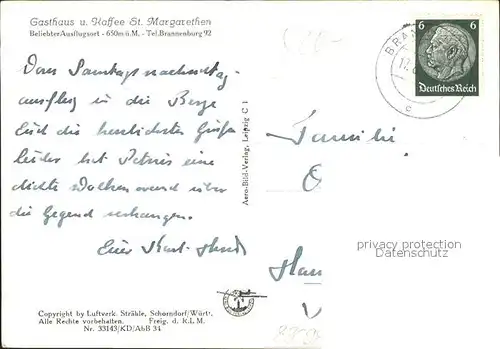 Gasthaus u. Kaffee St. Margarethen
Beliebter Ausflugsort - 650m ü. M. - Tel. Brannenburg 92
Vom Samstagnachmittag-
ausflug in die Berge
Euch die herzlichsten Grüße
leider hat Petrus eine
dichte Wolkenwand über
die Gegend verhangen.
Euer
Copyright by Luftverk. Strähle, Schorndorf/Württ.
Alle Rechte vorbehalten. Freig. d. R.L.M.
Nr. 33143/KD/AbB 34
Aero-Bild-Verlag, Leipzig C 1
BRAN
6 6
Deutsches Reich
Familie
O
privacy protection
www.oldthing.com
Han